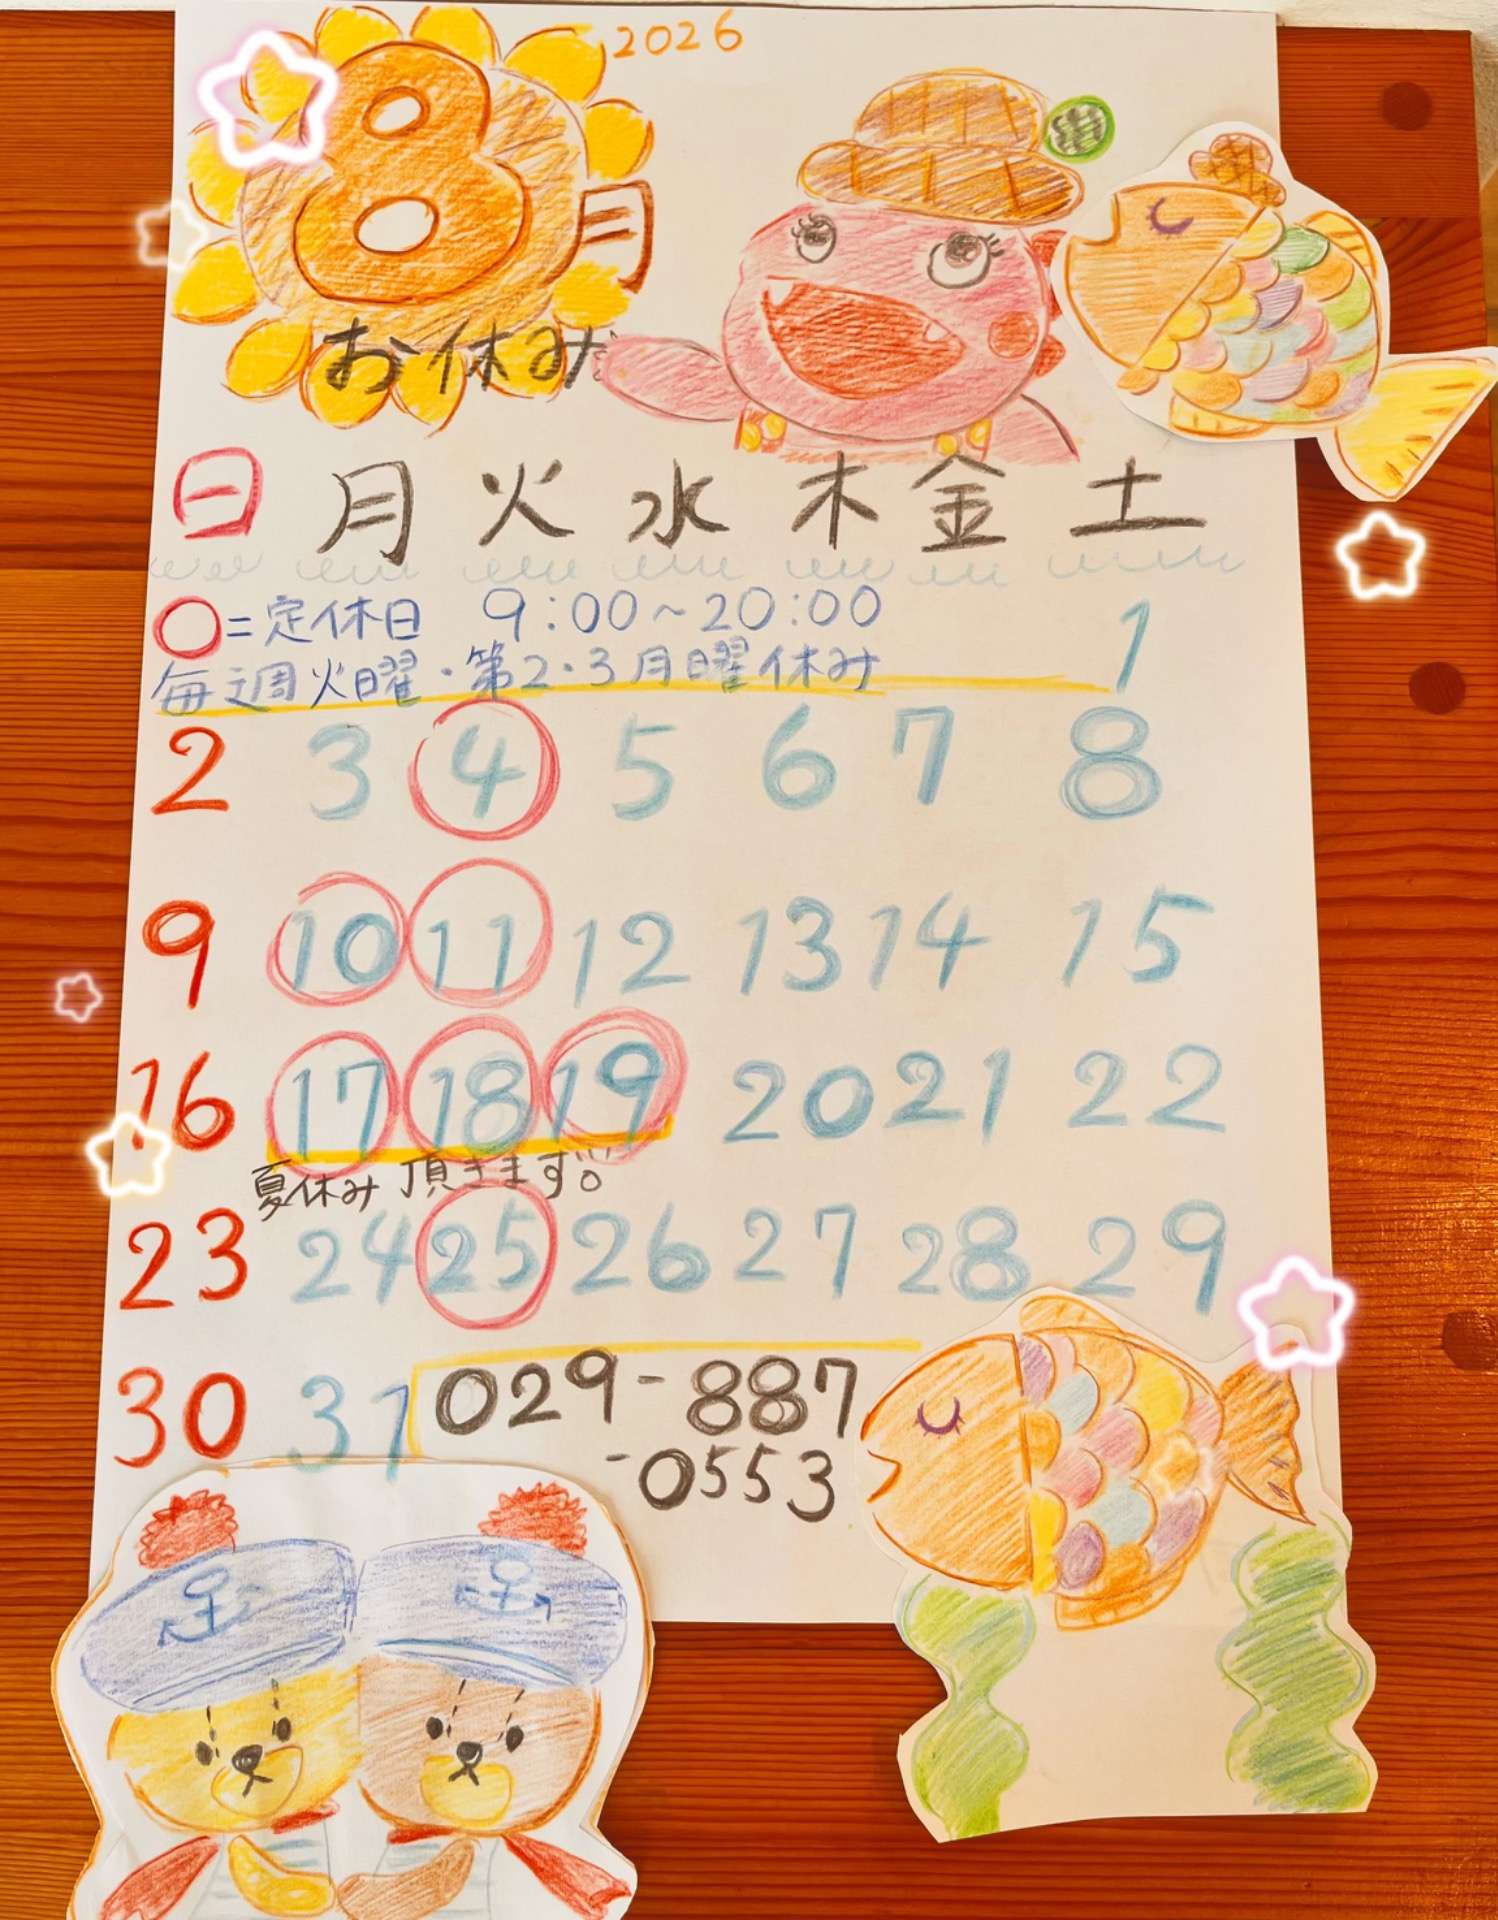 2026
8月
お休み
日 月 火 水 木 金 土
○=定休日 9:00~20:00
毎週火曜・第2・3月曜休み
1
2 3 4 5 6 7 8
9 10 11 12 13 14 15
16 17 18 19 20 21 22
夏休み 頂きます。
23 24 25 26 27 28 29
30 31
029-887
-0553